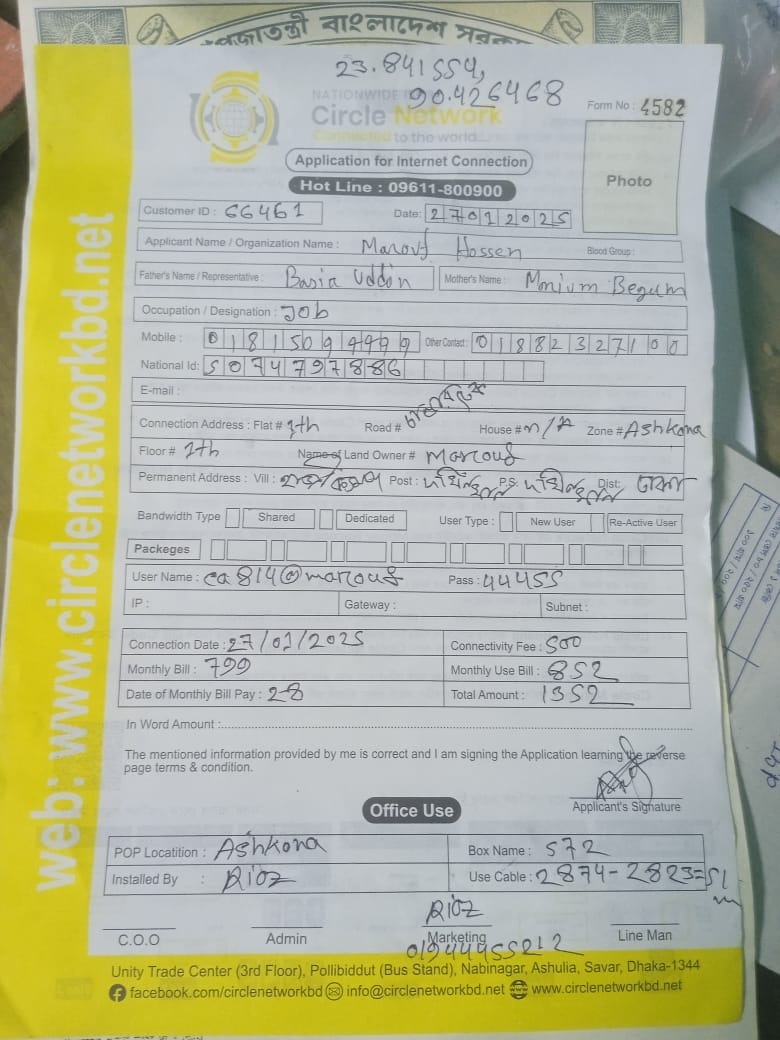 বাংলাদেশ
23.841554,
90.426468
NATIONWIDE
Circle Network
Connected to the world
Form No : 4582
Application for Internet Connection
Photo
Hot Line : 09611-800900
Customer ID : 66461 Date: 27012025
Applicant Name / Organization Name : Marouf Hossen Blood Group :
Father's Name / Representative : Basia Uddin Mother's Name : Monium Begum
Occupation / Designation : Job
Mobile : 01815099999 Other Contact : 01882327100
National Id: 5074797886
E-mail :
Connection Address : Flat # 7th Road # House # n/A Zone # Ashkona
Floor # 7th Name of Land Owner # Marouf
Permanent Address : Vill : Post : P.S: Dist: ঢাকা
Bandwidth Type Shared Dedicated User Type : New User Re-Active User
Packeges
User Name : ca814@marouf Pass : 44455
IP : Gateway : Subnet :
Connection Date : 27/01/2025 Connectivity Fee : 500
Monthly Bill : 799 Monthly Use Bill : 852
Date of Monthly Bill Pay : 28 Total Amount : 1352
In Word Amount :
The mentioned information provided by me is correct and I am signing the Application learning the reverse
page terms & condition.
Applicant's Signature
Office Use
POP Locatition : Ashkona Box Name : 572
Installed By : Rioz Use Cable : 2874-2823=51
m
Rioz
C.O.O Admin Marketing Line Man
01944455212
Unity Trade Center (3rd Floor), Pollibiddut (Bus Stand), Nabinagar, Ashulia, Savar, Dhaka-1344
facebook.com/circlenetworkbd info@circlenetworkbd.net www.circlenetworkbd.net
web: www.circlenetworkbd.net